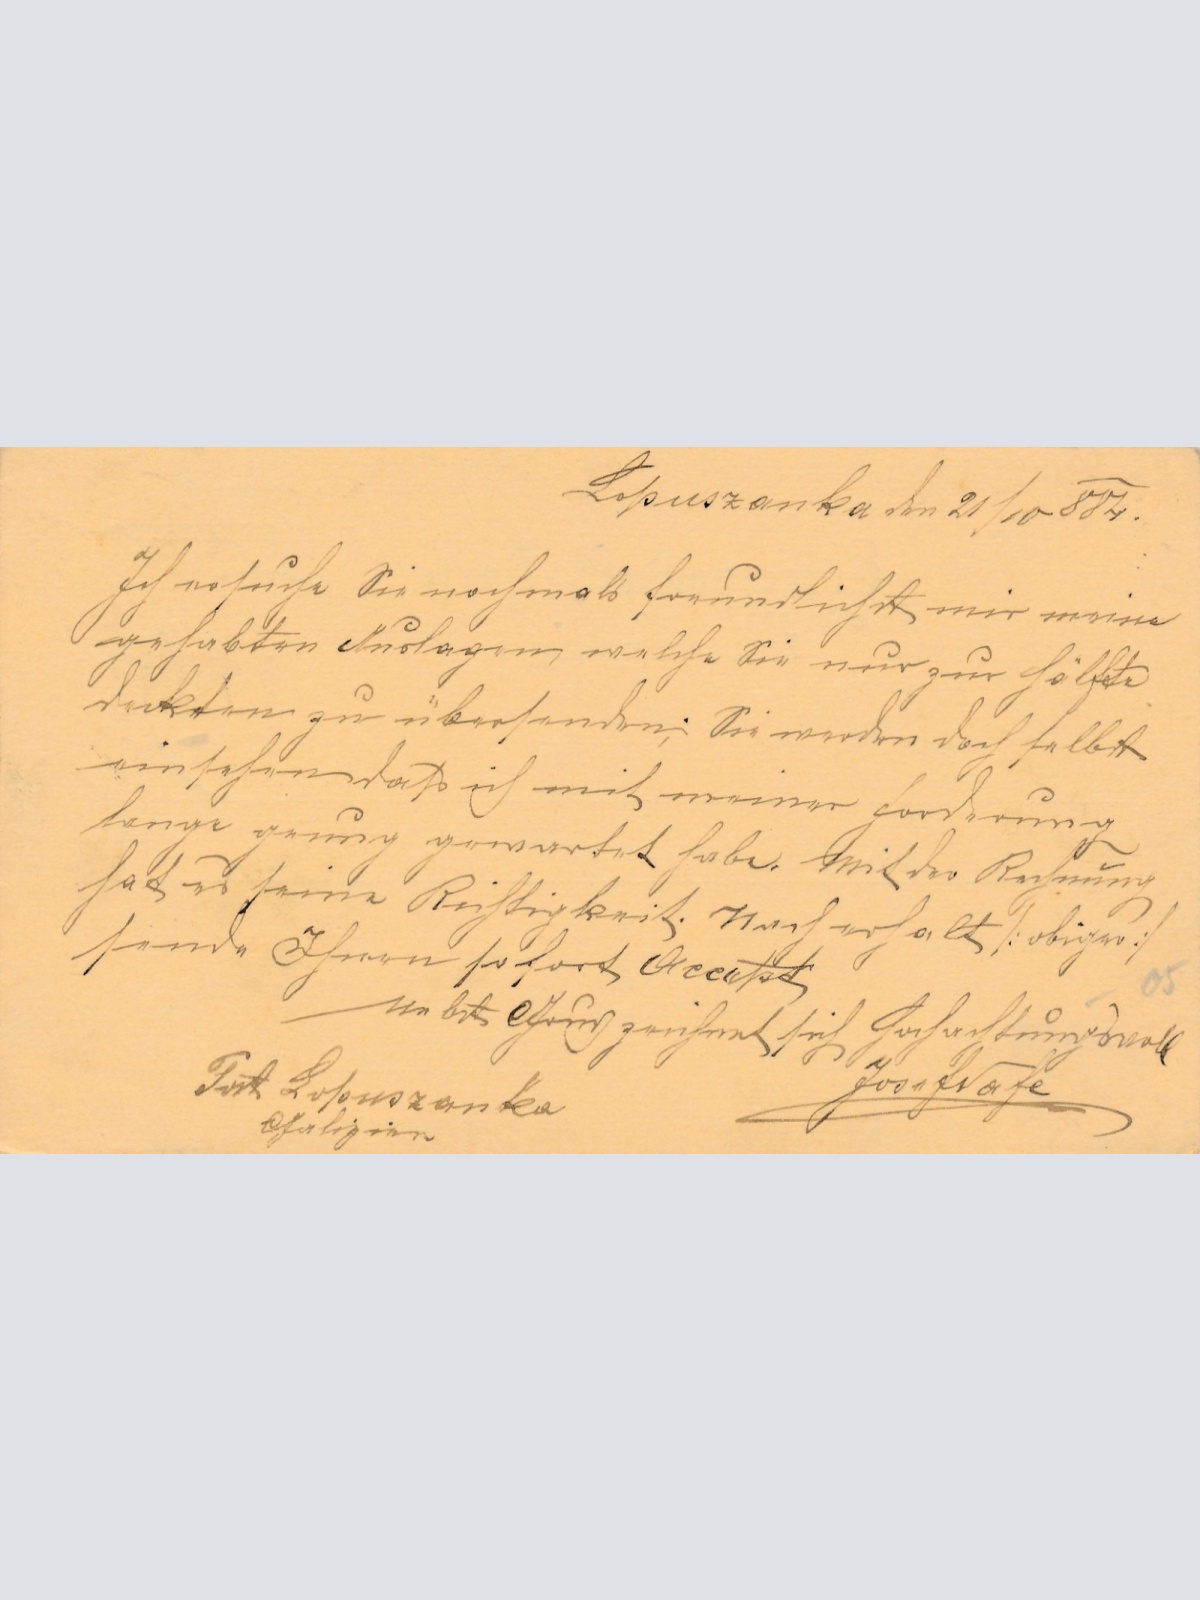 Lopuszanka den 21/10 884.
Ich ersuche Sie nochmals freundlichst mir meine
gehabten Auslagen, welche Sie nur zur Hälfte
deckten zu übersenden; Sie werden doch selbst
einsehen daß ich mit meiner Forderung
lange genug gewartet habe. Mit der Rechnung
hat es seine Richtigkeit. Nach erhalt /: obiger :/
sende Ihnen sofort
Nebst Gruß zeichnet sich Hochachtungsvoll
Josef
Post Lopuszanka
Galizien
05